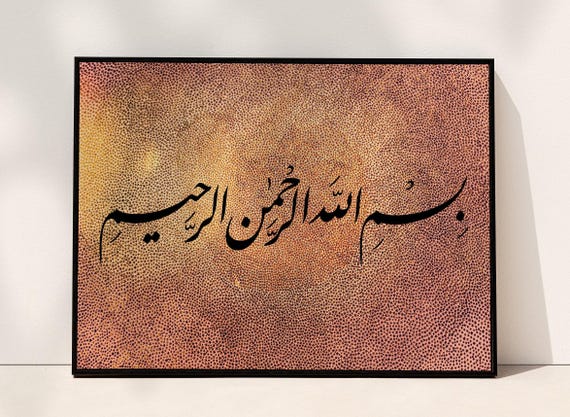 بِسْمِ اللَّه الرَّحْمٰن الرَّحیمِ